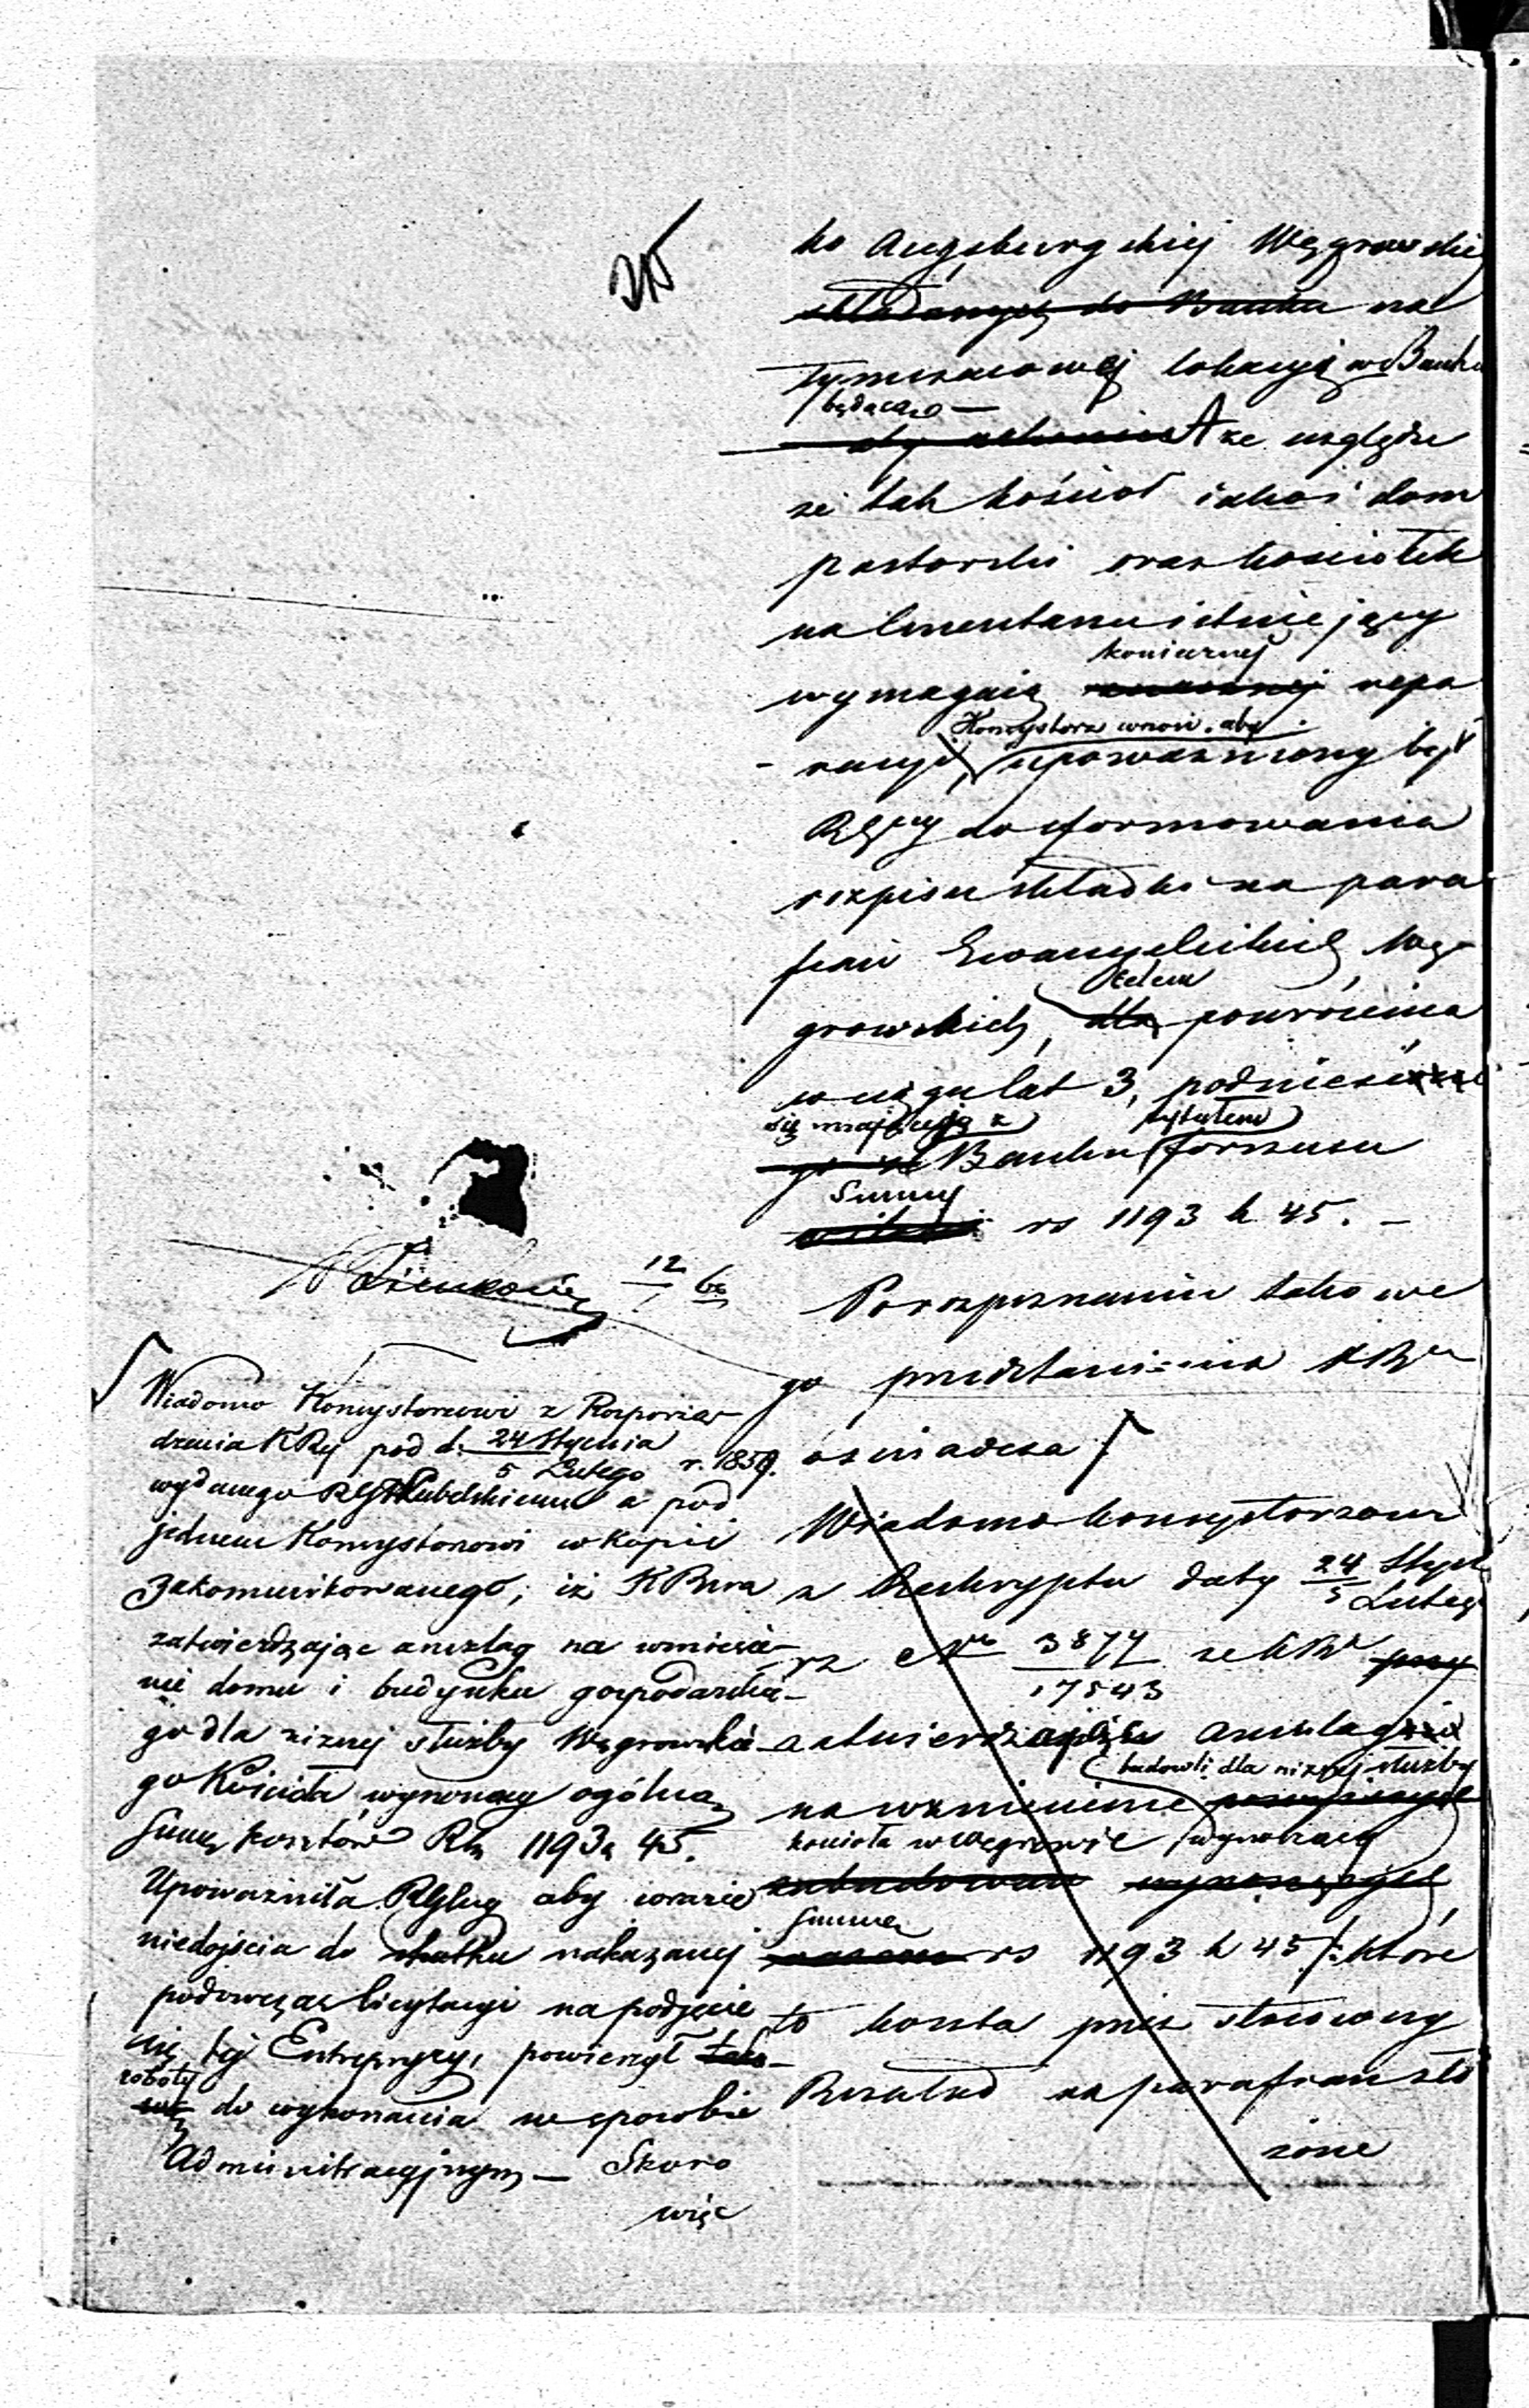 ko Augsburgskiej Węgrowskiej
składanych do Banku na
tymczasowej lokacyi w Banku
będącego —
A ze względu
że tak kościół jakoż dom
pastorski oraz kościołek
na Cmentarzu istniejący
koniecznej
wymagają repa
Konsystorz wnosi, aby
racyi, upoważniony był
do uformowania
rozpisu składki na para
fian Ewangelickich Wę-
celem
growskich, dla powrócenia
w ciągu lat 3, podnieść
się mającej z tytułem
Banku forszusu
Summy
rs 1193 k 45. —
Po rozpoznaniu takowe
go przedstawienia KR
oświadcza
Wiadomo konsystorzowi
z Reskryptu daty 24/5 Stycz Luteg
rz 3877/17543 że KR
zatwierdzając anszlag
budowli dla niższej służby
na wzniesienie
kościoła w Węgrowie wynoszący
zabudowań wynoszących
Summę
rs 1193 k 45 /: które
to koszta przez stosowny
Rozkład na parafian zło
żone
12/1 60
Wiadomo Konsystorzowi z Rozporzą-
dzenia KRej pod d. 24 Stycznia / 5 Lutego r. 1859.
wydanego Lubelskiemu a pod
jednem Konsystorzowi w kopii
zakomunikowanego, iż KRwa
zatwierdzając anszlag na wzniesie-
nie domu i budynku gospodarskie-
go dla niższej służby Węgrowskie-
go Kościoła, wynoszący ogólną
Summę kosztów Rs 1193 k 45.
Upoważniła aby w razie
niedojścia do skutku nakazanej
podówczas licytacyi na podjęcie
się tej Entrepryzy, powierzył
roboty
do wykonania w sposobie
Administracyjnym — Skoro
więc